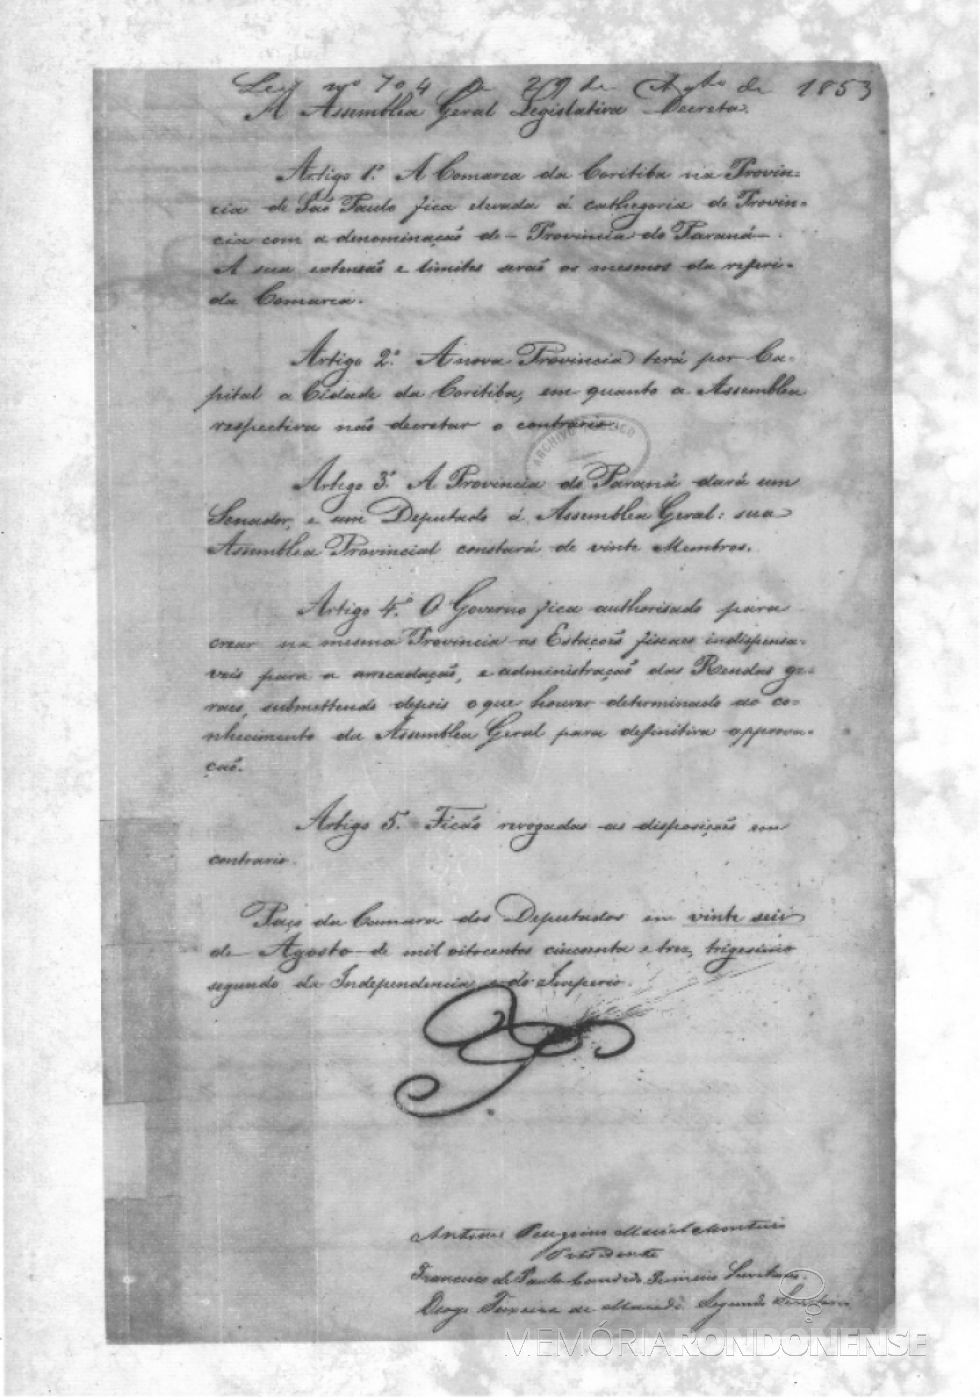 Ley nº 704 de 29 de Agto de 1853
A Assemblea Geral Legislativa Decreta.
Artigo 1º. A Comarca da Coritiba na Provin-
cia de São Paulo fica elevada á cathegoria de Provin-
cia com a denominação de - Provincia do Paraná -.
A sua extensão e limites serão os mesmos da referi-
da Comarca.
Artigo 2º. A nova Provincia terá por Ca-
pital a Cidade da Coritiba, em quanto a Assemblea
respectiva não decretar o contrario.
ARCHIVO PUBLICO
Artigo 3º. A Provincia do Paraná dará um
Senador, e um Deputado á Assemblea Geral: sua
Assemblea Provincial constará de vinte Membros.
Artigo 4º. O Governo fica authorisado para
crear na mesma Provincia as Estações fiscaes indispensa-
veis para a arrecadação, e administração das Rendas ge-
raes, submettendo depois o que houver determinado ao co-
nhecimento da Assemblea Geral para definitiva approva-
ção.
Artigo 5º. Ficão revogadas as disposições em
contrario.
Paço da Camara dos Deputados em vinte seis
de Agosto de mil oitocentos cincoenta e tres, trigesimo
segundo da Independencia e do Imperio.
Antonio Peregrino Maciel Monteiro
Presidente
Francisco de Paula Candido Primeiro Secretario.
Diogo Teixeira de Macedo Segundo Secretario
MEMÓRIA RONDONENSE